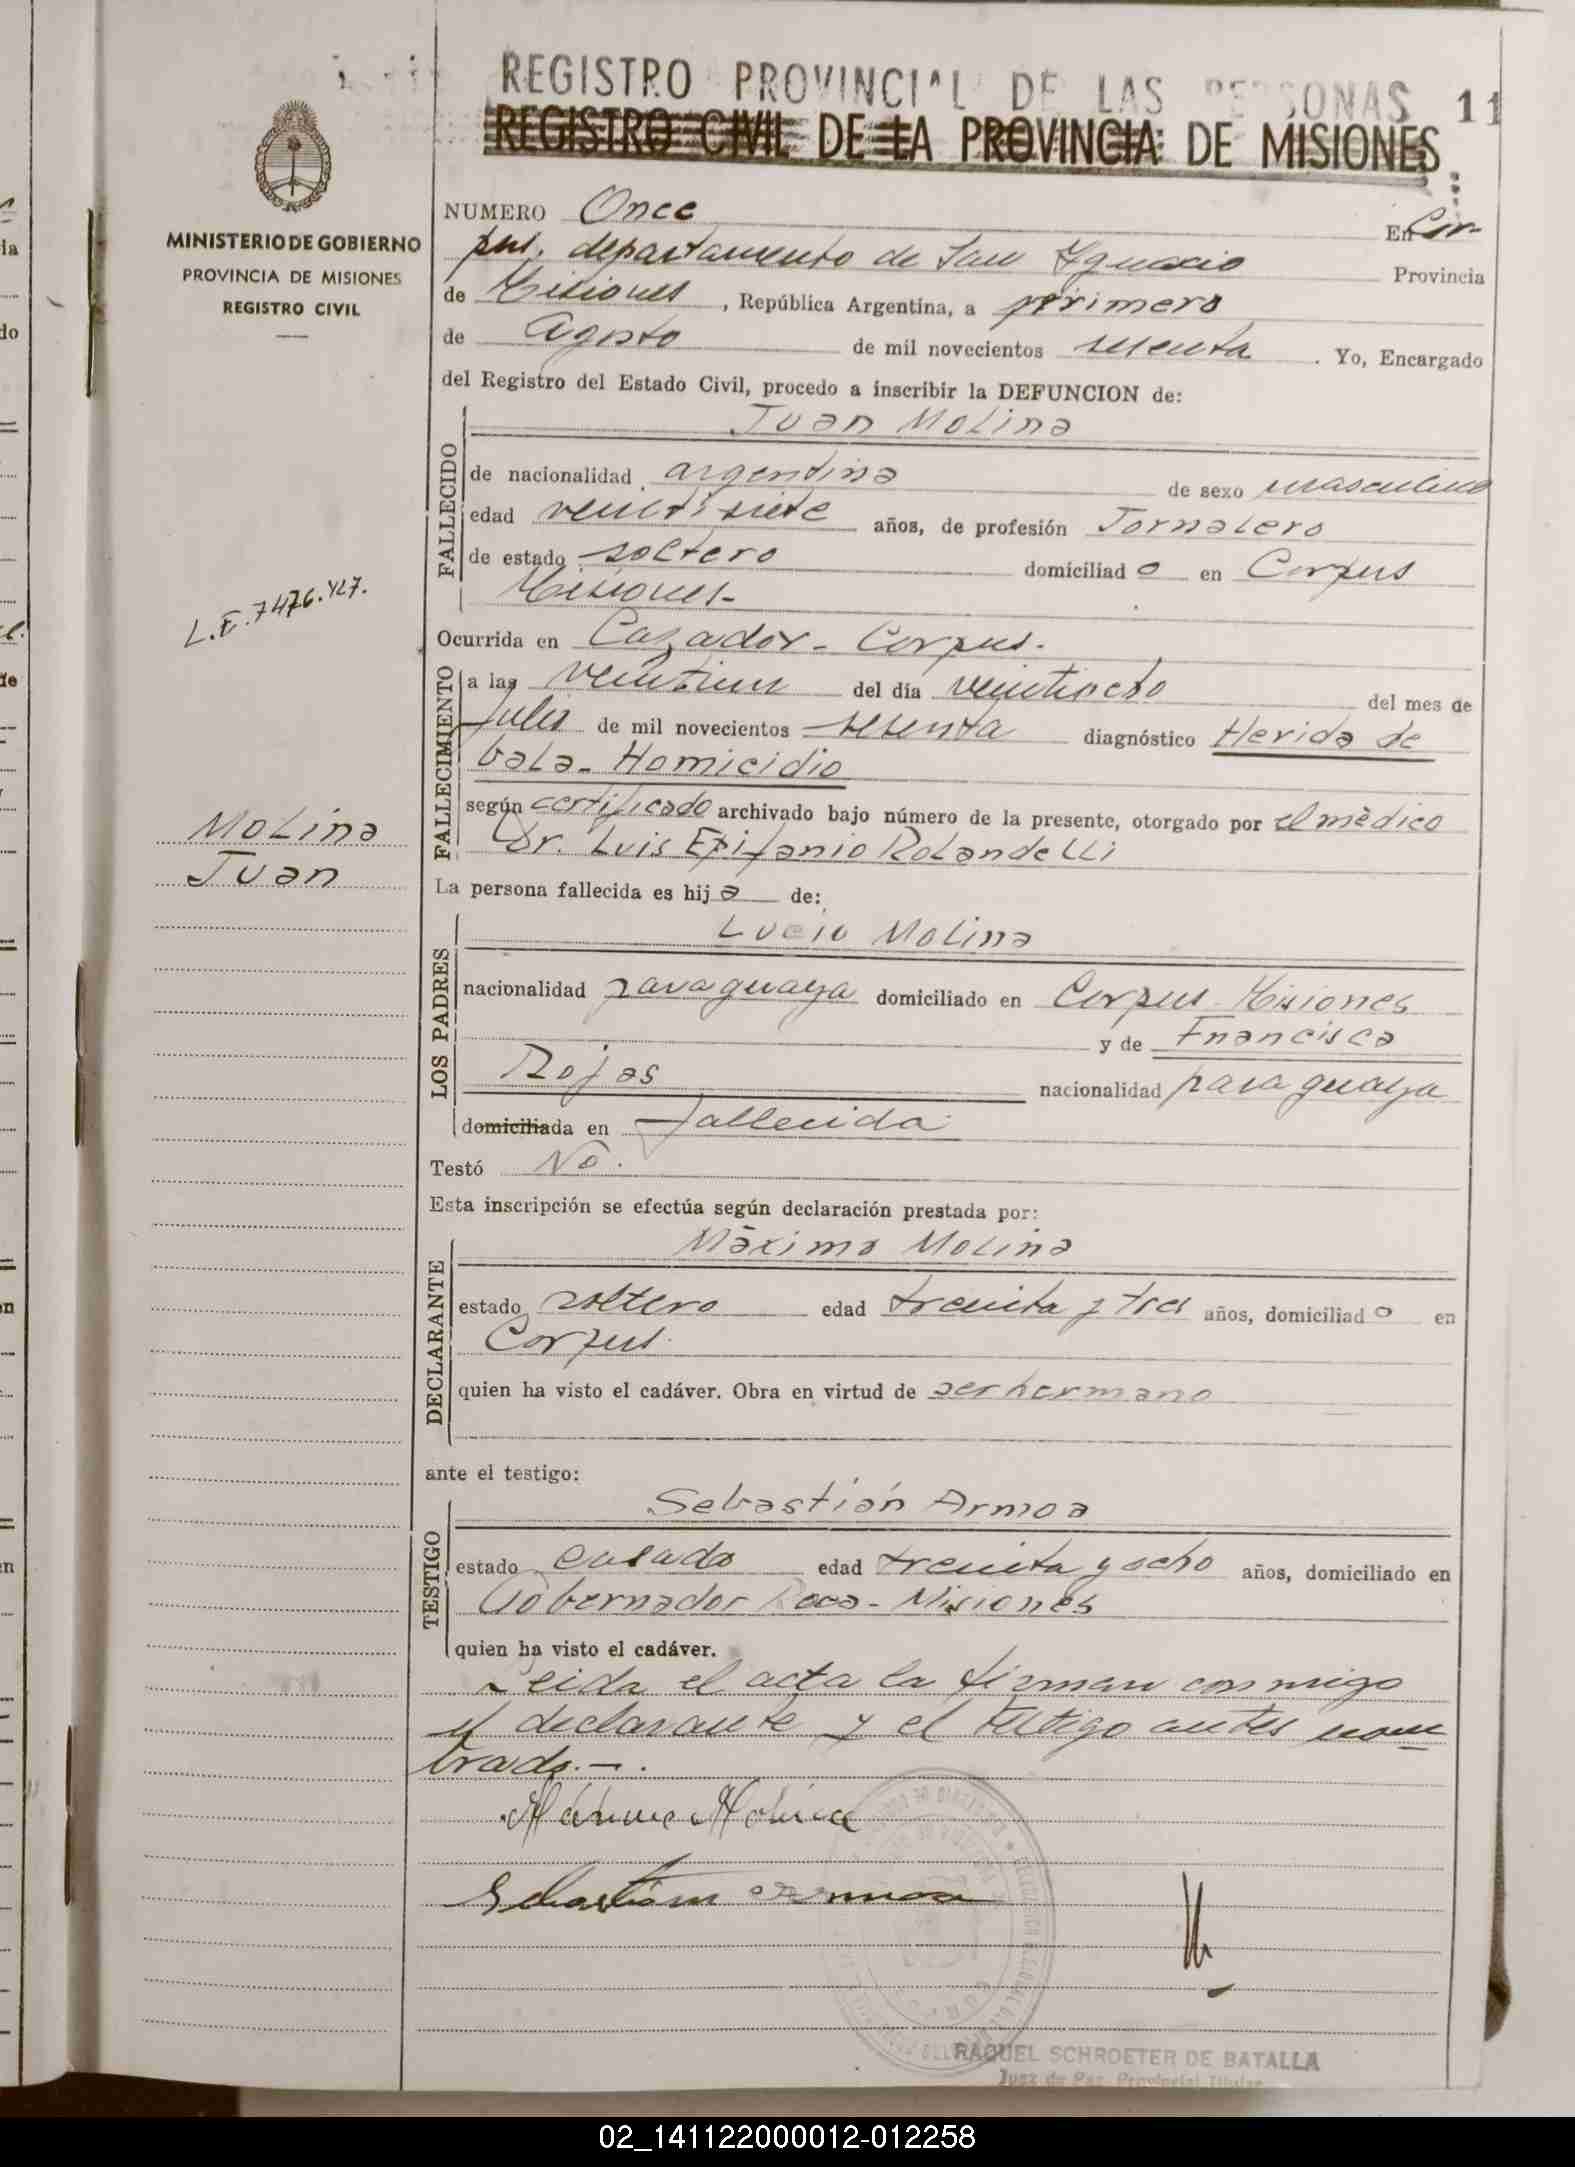 REGISTRO PROVINCIAL DE LAS PERSONAS 11
REGISTRO CIVIL DE LA PROVINCIA DE MISIONES
MINISTERIO DE GOBIERNO
PROVINCIA DE MISIONES
REGISTRO CIVIL
NUMERO Once En Cor-
pus. departamento de San Ygnacio Provincia
de Misiones, República Argentina, a primero
de Agosto de mil novecientos sesenta. Yo, Encargado
del Registro del Estado Civil, procedo a inscribir la DEFUNCION de:
FALLECIDO
Juan Molina
de nacionalidad argentina de sexo masculino
edad veintisiete años, de profesión Jornalero
de estado soltero domiciliado en Corpus
Misiones-
L.E. 7476.427.
Ocurrida en Cazador - Corpus.
FALLECIMIENTO
a las veintiun del día veintiocho del mes de
Julio de mil novecientos sesenta diagnóstico Herida de
bala - Homicidio
según certificado archivado bajo número de la presente, otorgado por el mèdico
Dr. Luis Epifanio Rolandelli
Molina
Juan
La persona fallecida es hija de:
LOS PADRES
Lucio Molina
nacionalidad paraguaya domiciliado en Corpus Misiones
y de Francisca
Rojas nacionalidad paraguaya
domiciliada en fallecida
Testó No.
Esta inscripción se efectúa según declaración prestada por:
DECLARANTE
Màximo Molina
estado soltero edad treinta y tres años, domiciliado en
Corpus.
quien ha visto el cadáver. Obra en virtud de ser hermano
ante el testigo:
TESTIGO
Sebastián Armoa
estado casado edad treinta y ocho años, domiciliado en
Gobernador Roca - Misiones
quien ha visto el cadáver.
Leida el acta la firman conmigo
el declarante y el testigo antes nom
brado.-.
Máximo Molina
Sebastián Armoa
RAQUEL SCHROETER DE BATALLA
Juez de Paz Provincial Titular
02_141122000012-012258